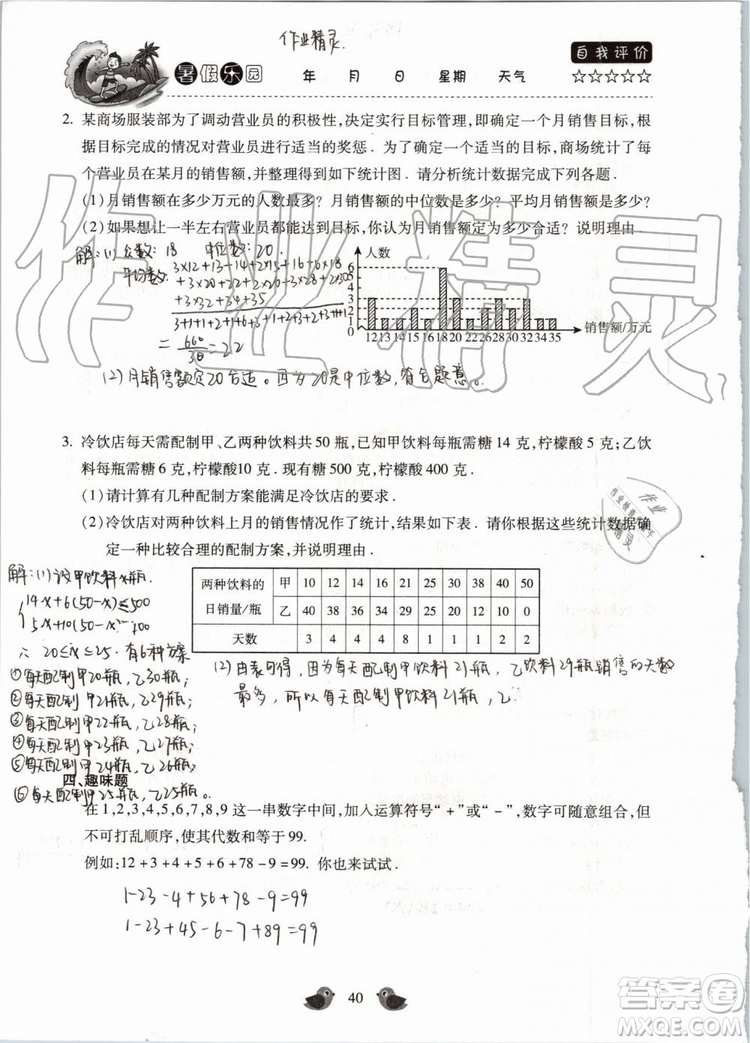 作业精灵
自我评价
暑假乐园 年 月 日 星期 天气 ☆☆☆☆☆
2. 某商场服装部为了调动营业员的积极性,决定实行目标管理,即确定一个月销售目标,根
据目标完成的情况对营业员进行适当的奖惩．为了确定一个适当的目标,商场统计了每
个营业员在某月的销售额,并整理得到如下统计图．请分析统计数据完成下列各题．
(1)月销售额在多少万元的人数最多？月销售额的中位数是多少？平均月销售额是多少？
(2)如果想让一半左右营业员都能达到目标,你认为月销售额定为多少合适？说明理由．
解:(1)众数: 18 中位数: 20.
平均数: 3×12+13+14+2×15+16+6×18
+3×20+22+2×
+3×32+34+35
3+1+1+2+1+6+3+1+3+2+3+1+1
= 660/30 = 22
(2)月销售额定20合适。因为20是中位数,符合题意。
人数
6
5
4
3
2
1
0
12 13 14 15 16 18 20 22 26 28 30 32 34 35 销售额/万元
3. 冷饮店每天需配制甲、乙两种饮料共50瓶,已知甲饮料每瓶需糖14克,柠檬酸5克;乙饮
料每瓶需糖6克,柠檬酸10克．现有糖500克,柠檬酸400克．
(1)请计算有几种配制方案能满足冷饮店的要求．
(2)冷饮店对两种饮料上月的销售情况作了统计,结果如下表．请你根据这些统计数据确
定一种比较合理的配制方案,并说明理由．
两种饮料的日销量/瓶 甲 10 12 14 16 21 25 30 38 40 50
乙 40 38 36 34 29 25 20 12 10 0
天数 3 4 4 4 8 1 1 1 2 2
解:(1)设甲饮料x瓶.
14x+6(50-x)≤500
5x+10(50-x)≤400
∴ 20≤x≤25. 有6种方案
①每天配制甲20瓶,乙30瓶;
②每天配制甲21瓶,乙29瓶;
③每天配制甲22瓶,乙28瓶;
④每天配制甲23瓶,乙27瓶;
⑤每天配制甲24瓶,乙26瓶;
⑥每天配制甲25瓶,乙25瓶.
(2)由表可得,因为每天配制甲饮料21瓶,乙饮料29瓶销售的天数
最多,所以每天配制甲饮料21瓶,乙
四、趣味题
在1,2,3,4,5,6,7,8,9这一串数字中间,加入运算符号“+”或“-”,数字可随意组合,但
不可打乱顺序,使其代数和等于99.
例如:12+3+4+5+6+78-9=99. 你也来试试．
1-23-4+56+78-9=99
1-23+45-6-7+89=99
40
作业精灵
答案圈
MXQE.COM